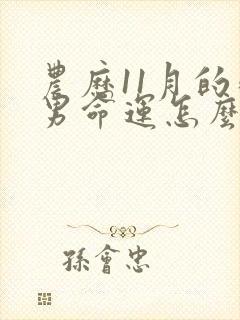 農曆11月的
男命運怎麼
孫會忠